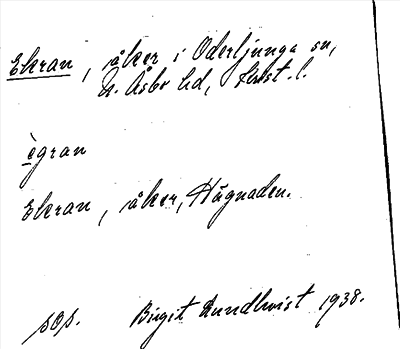 Ekran, åker i Oderljunga sn,
N. Åsbo hd, Krist. l.
ègran
Ekran, åker, Hugnaden.
pop. Birgit Lundkvist 1938.